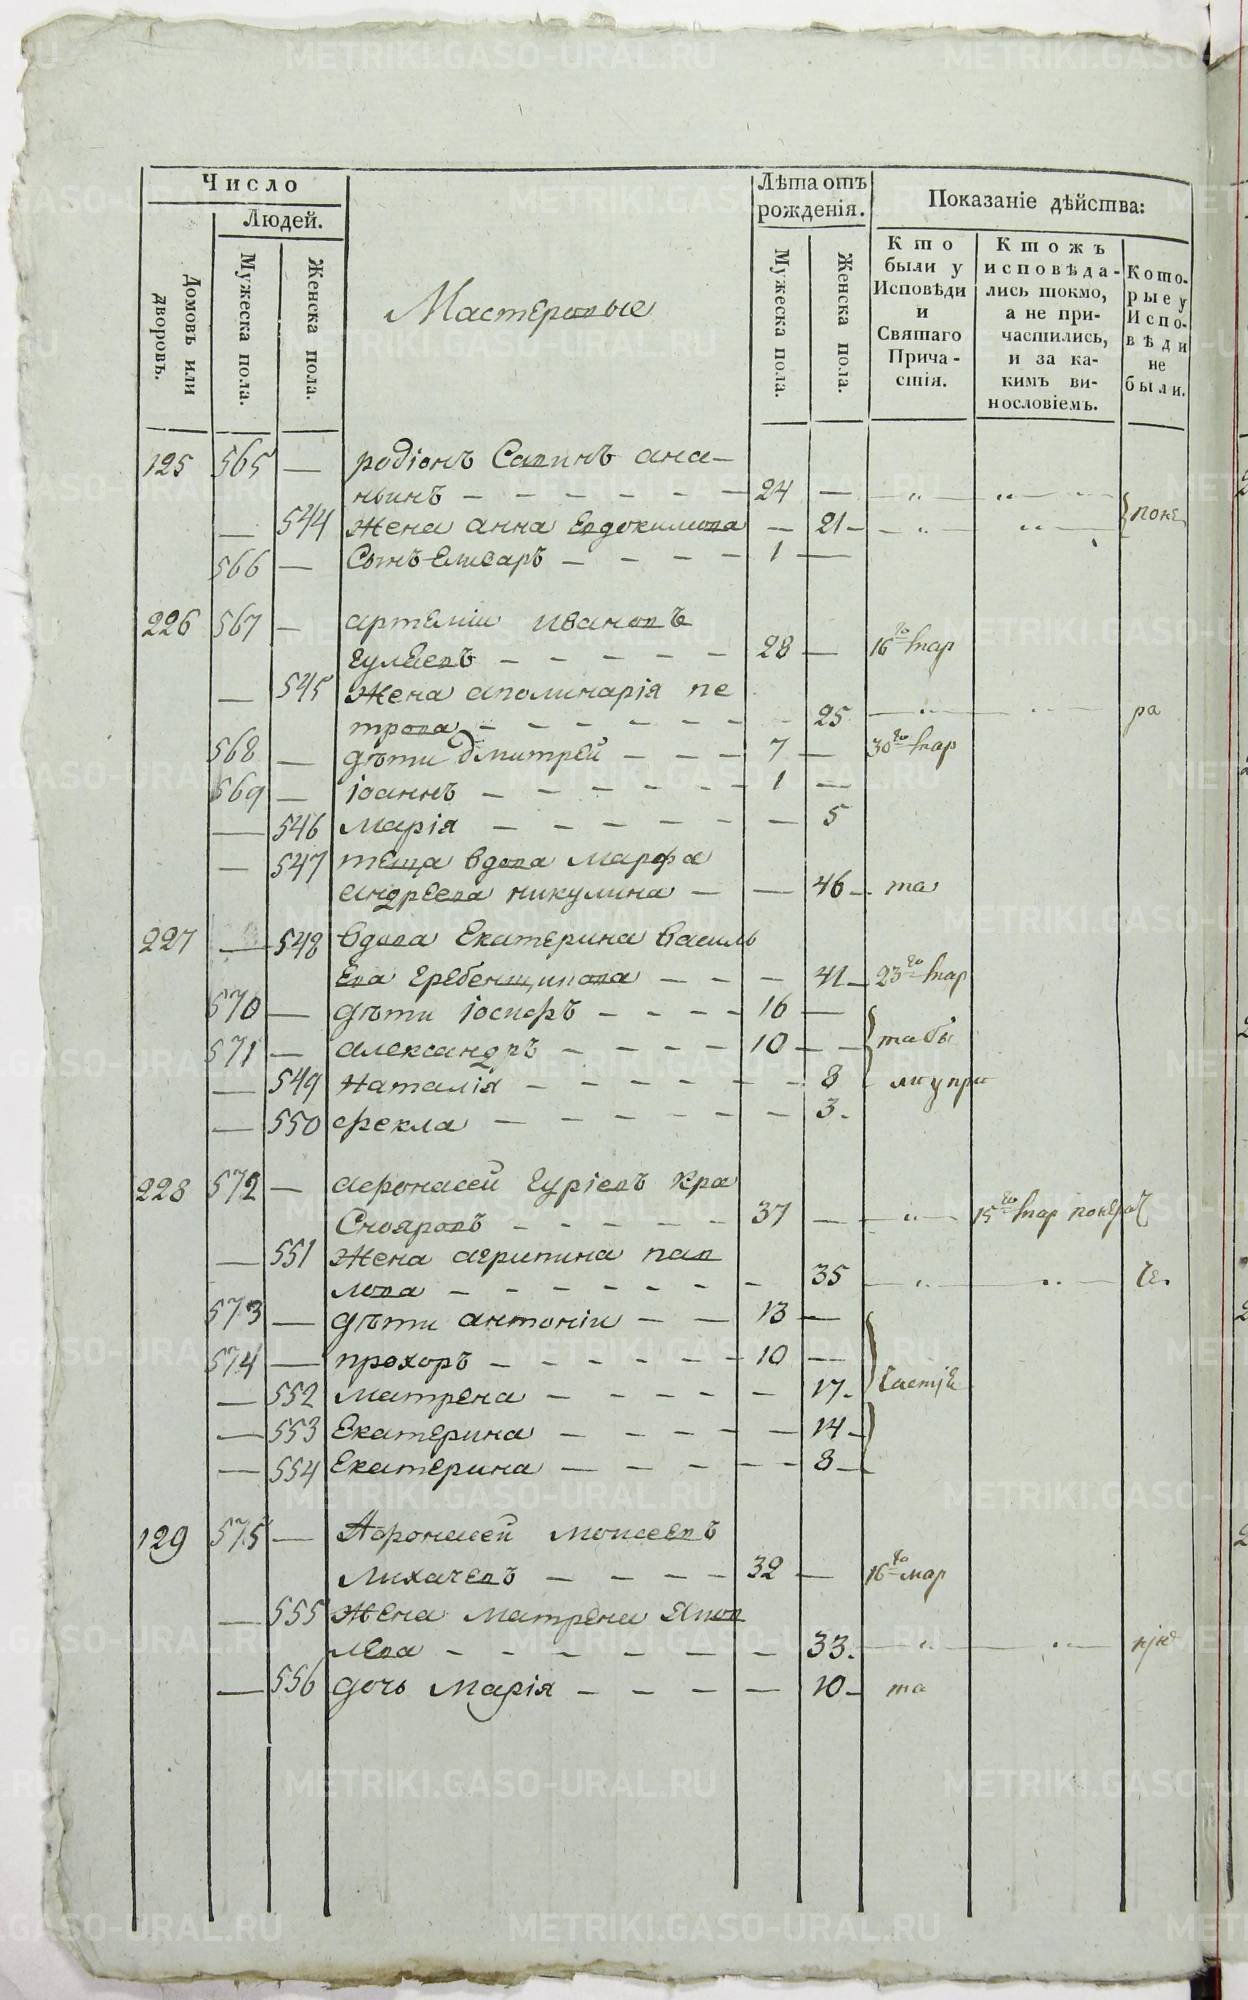 Число
Людей.
Домовъ или дворовъ.
Мужеска пола.
Женска пола.
Мастеровые
Лѣта отъ рожденія.
Мужеска пола.
Женска пола.
Показаніе дѣйства:
Кто были у Исповѣди и Святаго Причастія.
Ктожъ исповѣдались токмо, а не причастились, и за какимъ винословіемъ.
Которые у Исповѣди не были.
125 565 — родіонъ Савинъ ана-
ньинъ — 24 —
— 544 Жена анна Евдокимова — 21 —
566 — Сынъ Елисаръ — 1 —
226 567 — артеміи Ивановъ
Гулѣевъ — 28 — 16го мар
— 545 Жена аполинарія пе
трова — 25 ра
568 — дѣти дмитрей — 7 — 30го мар
569 — іоаннъ — 1 —
— 546 Марія — 5
— 547 теща вдова Марфа
андреева никулина — 46 — та
227 — 548 вдова Екатерина василь
Ева Гребенщикова — 41 — 23го мар
570 — дѣти іосифъ — 16 —
571 — александръ — 10 — та бы
— 549 Наталія — 8 ли у при
— 550 фекла — 3.
228 572 — афонасей Гуріевъ Кра
Снояровъ — 37 — 15го мар
— 551 Жена агрипина пав
лова — 35
573 — дѣти антоніи — 13 —
574 — прохоръ — 10 —
— 552 Матрена — 17. частіе
— 553 Екатерина — 14 —
— 554 Екатерина — 8 —
129 575 — Афонасей Моисеевъ
Лихачевъ — 32 — 16го мар
— 555 Жена Матрена Яков
лева — 33.
— 556 дочь Марія — 10 — та
METRIKI.GASO-URAL.RU